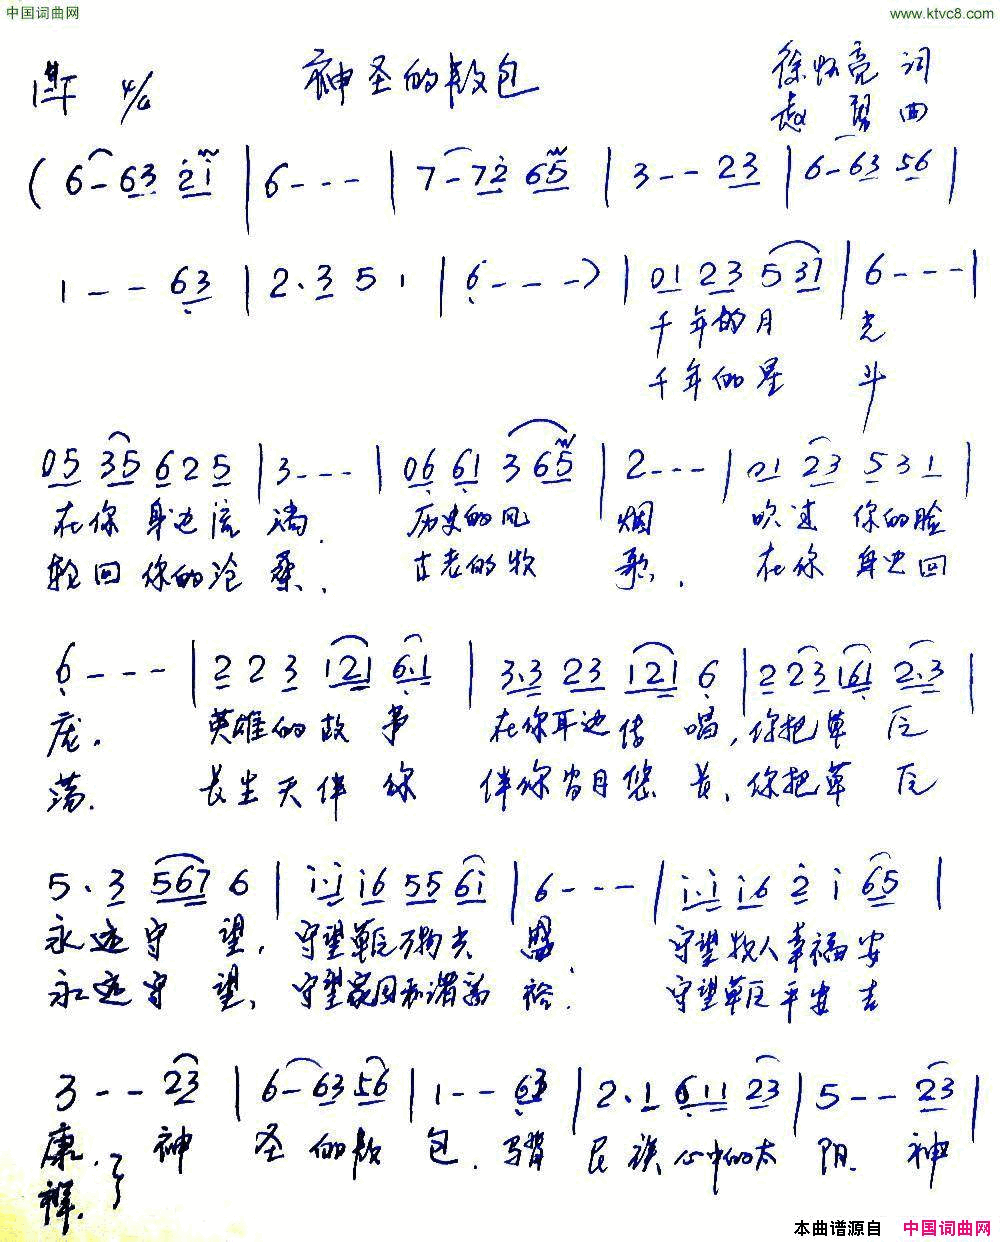 中国词曲网 www.ktvc8.com
神圣的敖包
徐怀亮 词
曲
( 6 - 63 2̇1̇ | 6 - - - | 7 - 72̇ 65 | 3 - - 23 | 6 - 63 56 |
1 - - 63 | 2 . 3 5 1 | 6 - - - ) | 01 23 5 37 | 6 - - - |
千年的月 光
千年的星 斗
05 35 6 2 5 | 3 - - - | 06 61 3 65 | 2 - - - | 01 23 5 3 1 |
在你身边流淌. 历史的风 烟 吹过 你的脸
轮回你的沧桑. 古老的牧 歌. 在你 身边回
6 - - - | 2 2 3 121 6.1 | 3.3 23 121 6 | 2 23 161 2.3 |
庞. 英雄的故 事 在你耳边传 唱, 你把草 原
荡. 长生天伴 你 伴你岁月悠 长, 你把草 原
5 . 3 567 6 | i.i i6 55 6i | 6 - - - | i.i i6 2̇ i 65 |
永远守 望, 守望草原万物共 盟. 守望牧人幸福安
永远守 望, 守望家园和谐富 裕. 守望草原平安吉
3 - - 23 | 6 - 63 56 | 1 - - 63 | 2 . 1 611 23 | 5 - - 23 |
康. 神 圣 的敖 包. 马背 民族心中的太 阳. 神
祥.
本曲谱源自 中国词曲网